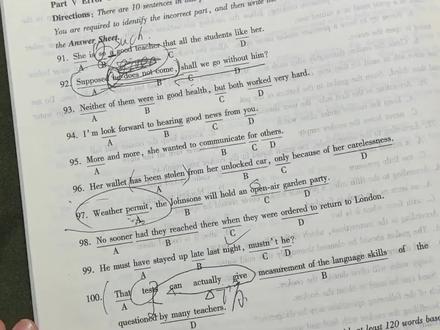 Part V Error
Directions: There are 10 sentences in this
You are required to identify the incorrect part, and then write
the Answer Sheet.
such
91. She is so a good teacher that all the students like her.
A B C D
92. Suppose he does not come, shall we go without him?
A B C D
93. Neither of them were in good health, but both worked very hard.
A B C D
94. I'm look forward to hearing good news from you.
A B C D
95. More and more, she wanted to communicate for others.
A B C D
96. Her wallet has been stolen from her unlocked car, only because of her carelessness.
A B C D
97. Weather permit, the Johnsons will hold an open-air garden party.
A B C D
98. No sooner had they reached there when they were ordered to return to London.
A B C D
99. He must have stayed up late last night, mustn't he?
A B C D
100. That tests can actually give measurement of the language skills of the
A B
questioned by many teachers.
D
at least 120 words